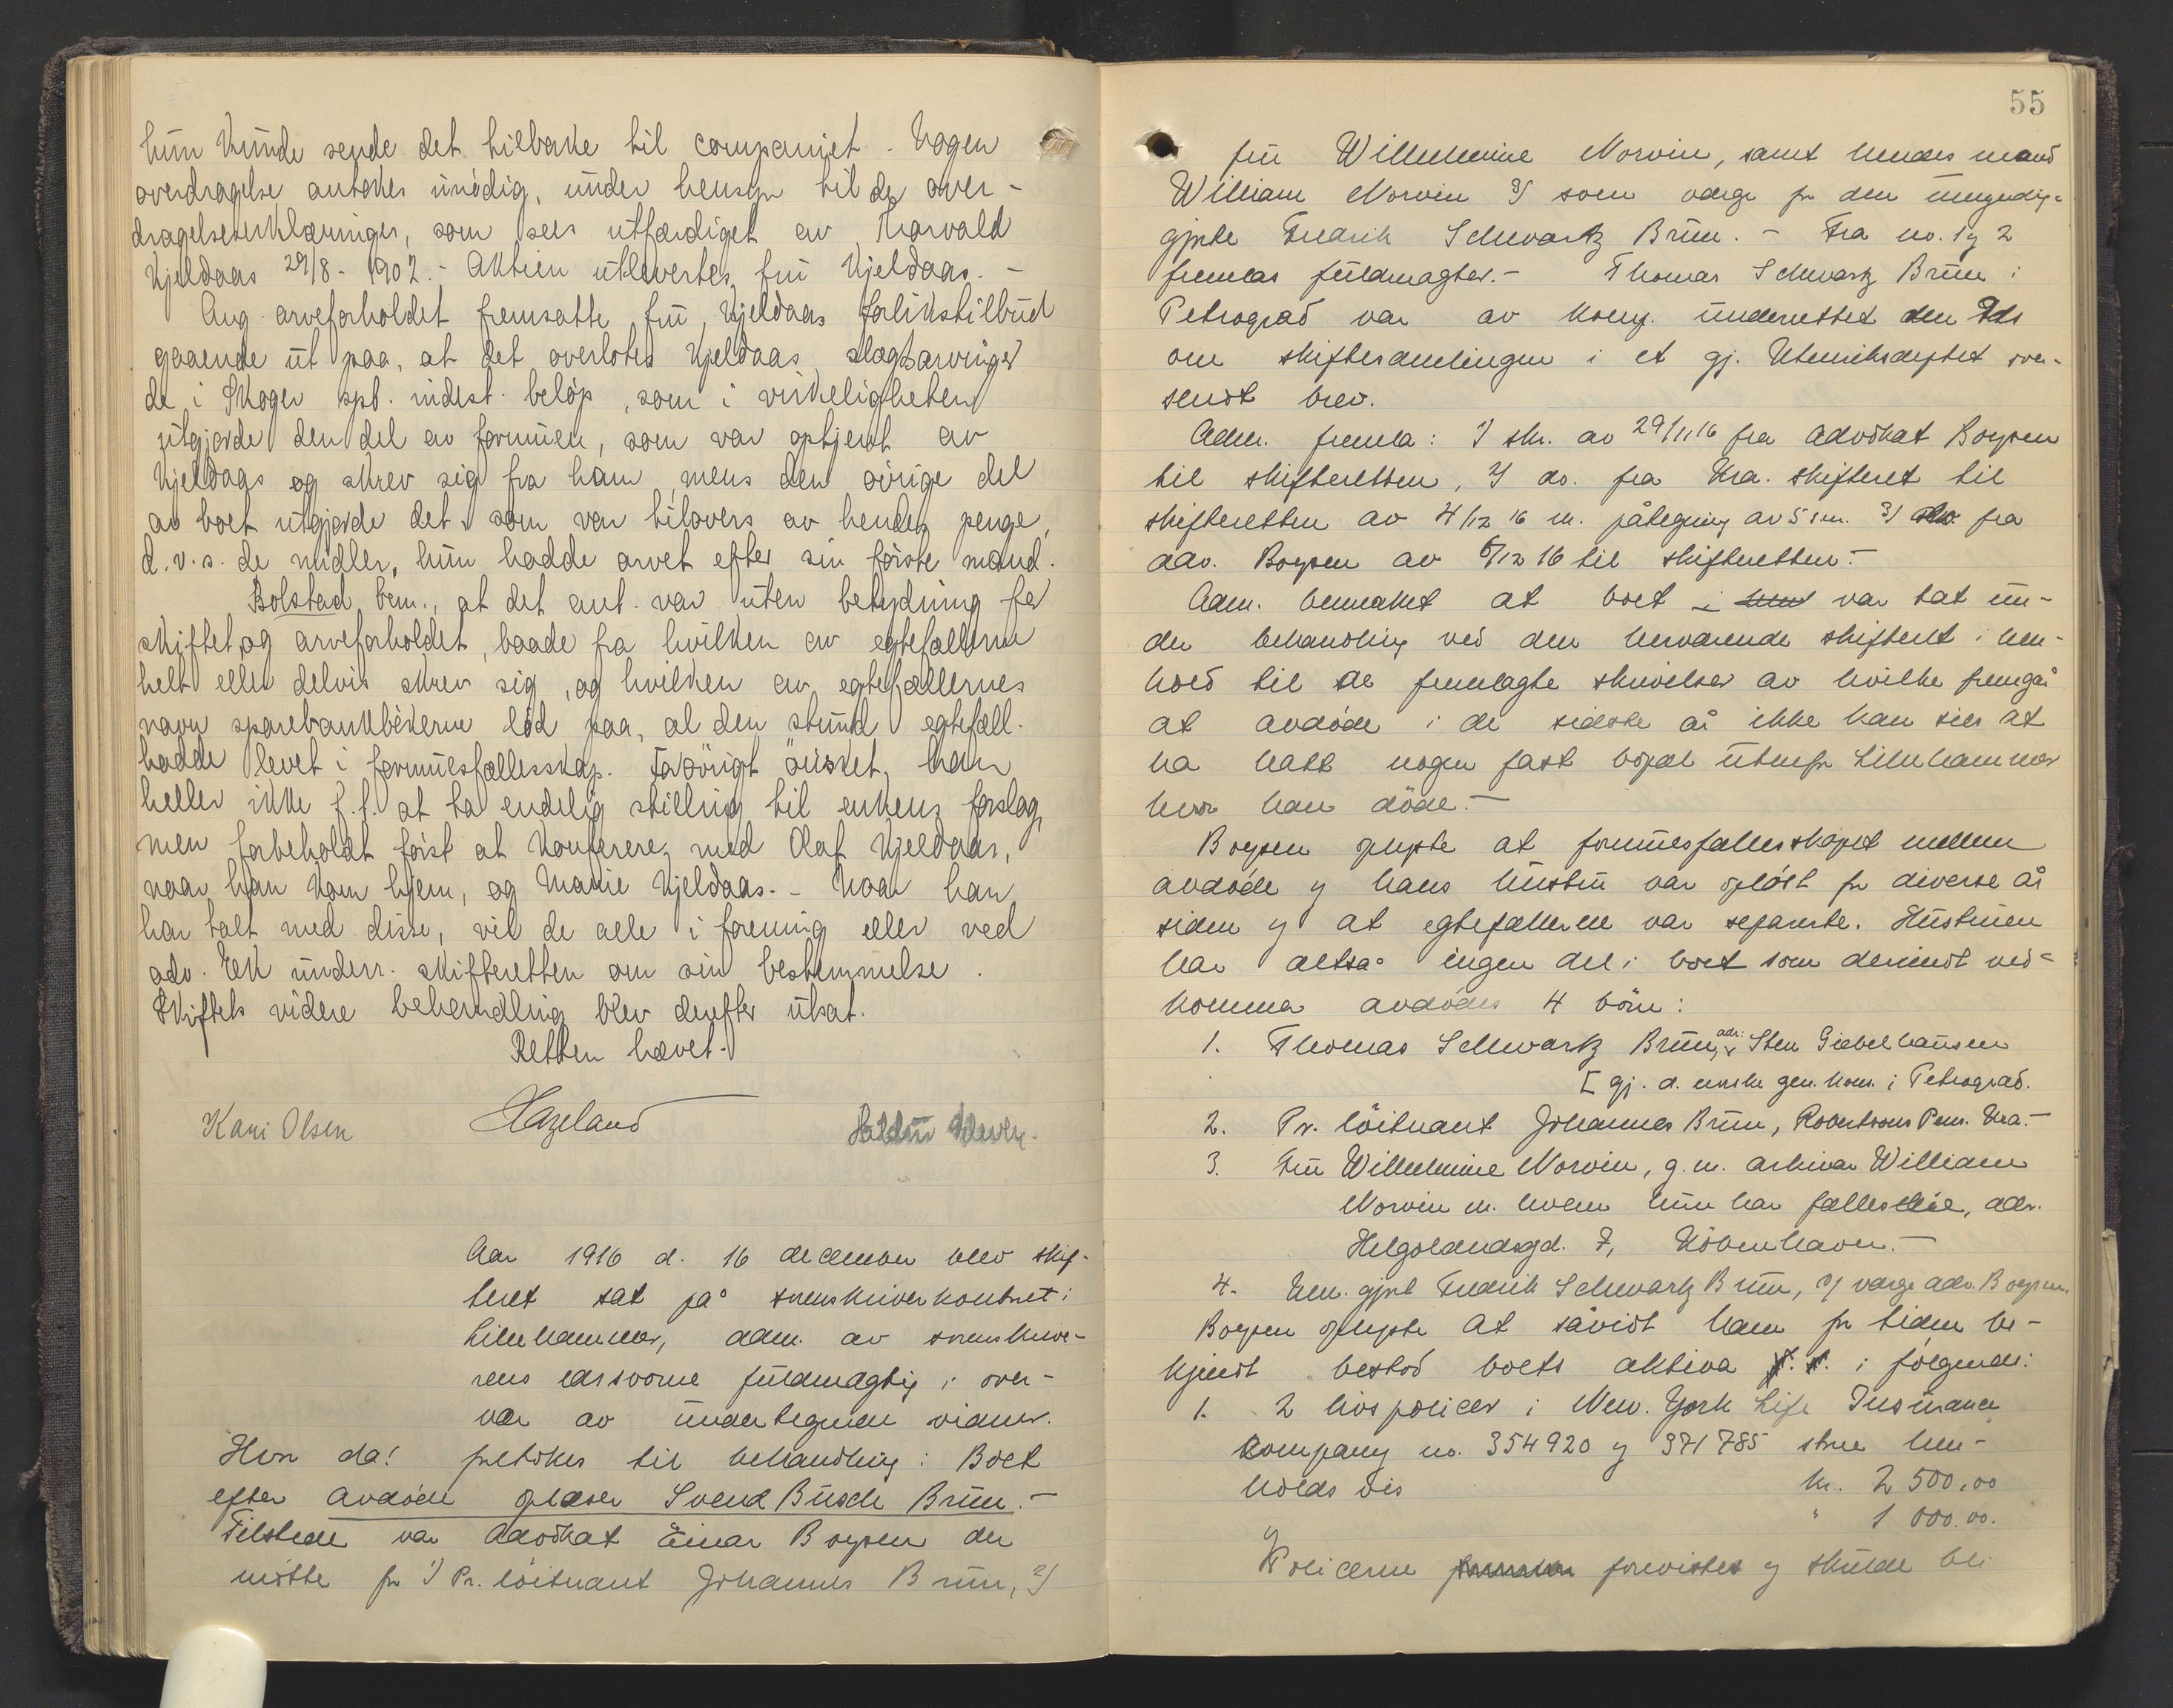 hun kunde sende det tilbake til companiet. Nogen
overdragelse antokes unödig, under hensyn til de over-
dragelseserklæringer, som sees utfærdiget av Thorvald
Kjeldaas 29/8 - 1907. - Aktien utlevertes fru Kjeldaas. -
Ang. arveforholdet fremsatte fru Kjeldaas forlikstilbud
gaaende ut paa, at det overlotes Kjeldaas slegtsarvinger
de i Skoger spb. indest. belöp, som i virkeligheten
utgjorde den del av formuen, som var optjent av
Kjeldaas og skrev sig fra ham, mens den övrige del
av boet utgjorde det, som var tilovers av hendes penge,
d.v.s. de midler, hun hadde arvet efter sin förste mand.
Bolstad bem., at det ant. var uten betydning for
skiftet og arveforholdet, baade fra hvilken av egtefællerne
helt eller delvis skrev sig, og hvilken av egtefællernes
navn sparebankbökerne löd paa, al den stund egtefæll.
hadde levet i formuesfællesskap. Forövrigt önsket han
heller ikke f.t. at ta endelig stilling til enkens forslag,
men forbeholdt först at konferere med Olaf Kjeldaas,
naar han kom hjem, og Marie Kjeldaas. - Naar han
har talt med disse, vil de alle i forening eller ved
adv. Eek underr. skifteretten om sin bestemmelse.
Skiftets videre behandling blev derefter utsat.
Retten hævet.
Kari Olsen Hazeland
Aar 1916 d. 16 december blev skif-
teret sat på sorenskriverkontoret i
Lillehammer, adm. av sorenskrive-
rens edsvorne fuldmægtig i over-
vær av undertegnede vidner.
Hvor da! foretokes til behandling: Boet
efter avdöde oplæser Svend Busch Brun. -
Tilstede var Advokat Einar Boysen der
mötte for 1) Pr. löitnant Johannes Brun, 2)
55
fru Willhelmine Norvin, samt hendes mand
William Norvin 3) som værge for den umyndig-
gjorte Fredrik Schwartz Brun. - Fra no. 1 og 2
fremlas fuldmagter. - Thomas Schwartz Brun i
Petrograd var av underrettet den
om skiftesamlingen i et gj. Utenriksdeptet over-
sendt brev.
Adm. fremla: 1 skr. av 29/11 16 fra Advokat Boysen
til skifteretten, 2) do. fra Kra. skifteret til
skifteretten av 4/12 16 m. påtegning av 5 s.m. 3) fra
adv. Boysen av 6/12 16 til skifteretten. -
Adm. bemærket at boet i var tat un-
der behandling ved den herværende skifteret i hen-
hold til de fremlagte skrivelser av hvilke fremgår
at avdöde i de sidste år ikke kan sies at
ha hatt nogen fast bopæl utenfor Lillehammer
hvor han döde. -
Boysen oplyste at formuesfællesskapet mellem
avdöde og hans hustru var oplöst for diverse år
siden og at egtefællerne var separerte. Hustruen
har altså ingen del i boet som derimot ved-
kommer avdödes 4 börn:
1. Thomas Schwartz Brun, adr: Sten Giebelhausen
[gj. d. norske gen. kons. i Petrograd.
2. Pr. löitnant Johannes Brun, Robertsons Pens. Kra. -
3. Fru Willhelmine Norvin, g.m. arkivar William
Norvin m. hvem hun har fælleseie, adr.
Helgolandsgd. 7, Köbenhavn. -
4. Um. gjort Fredrik Schwartz Brun, værge adv. Boysen.
Boysen oplyste at såvidt ham for tiden be-
kjendt bestod boets aktiva i fölgende:
1. 2 livspolicer i New. York Life Insurance
Company no. 354920 og 371785 store hen-
holdsvis kr. 2 500.00
og " 1 000.00.
Policerne forevistes og skulde bli